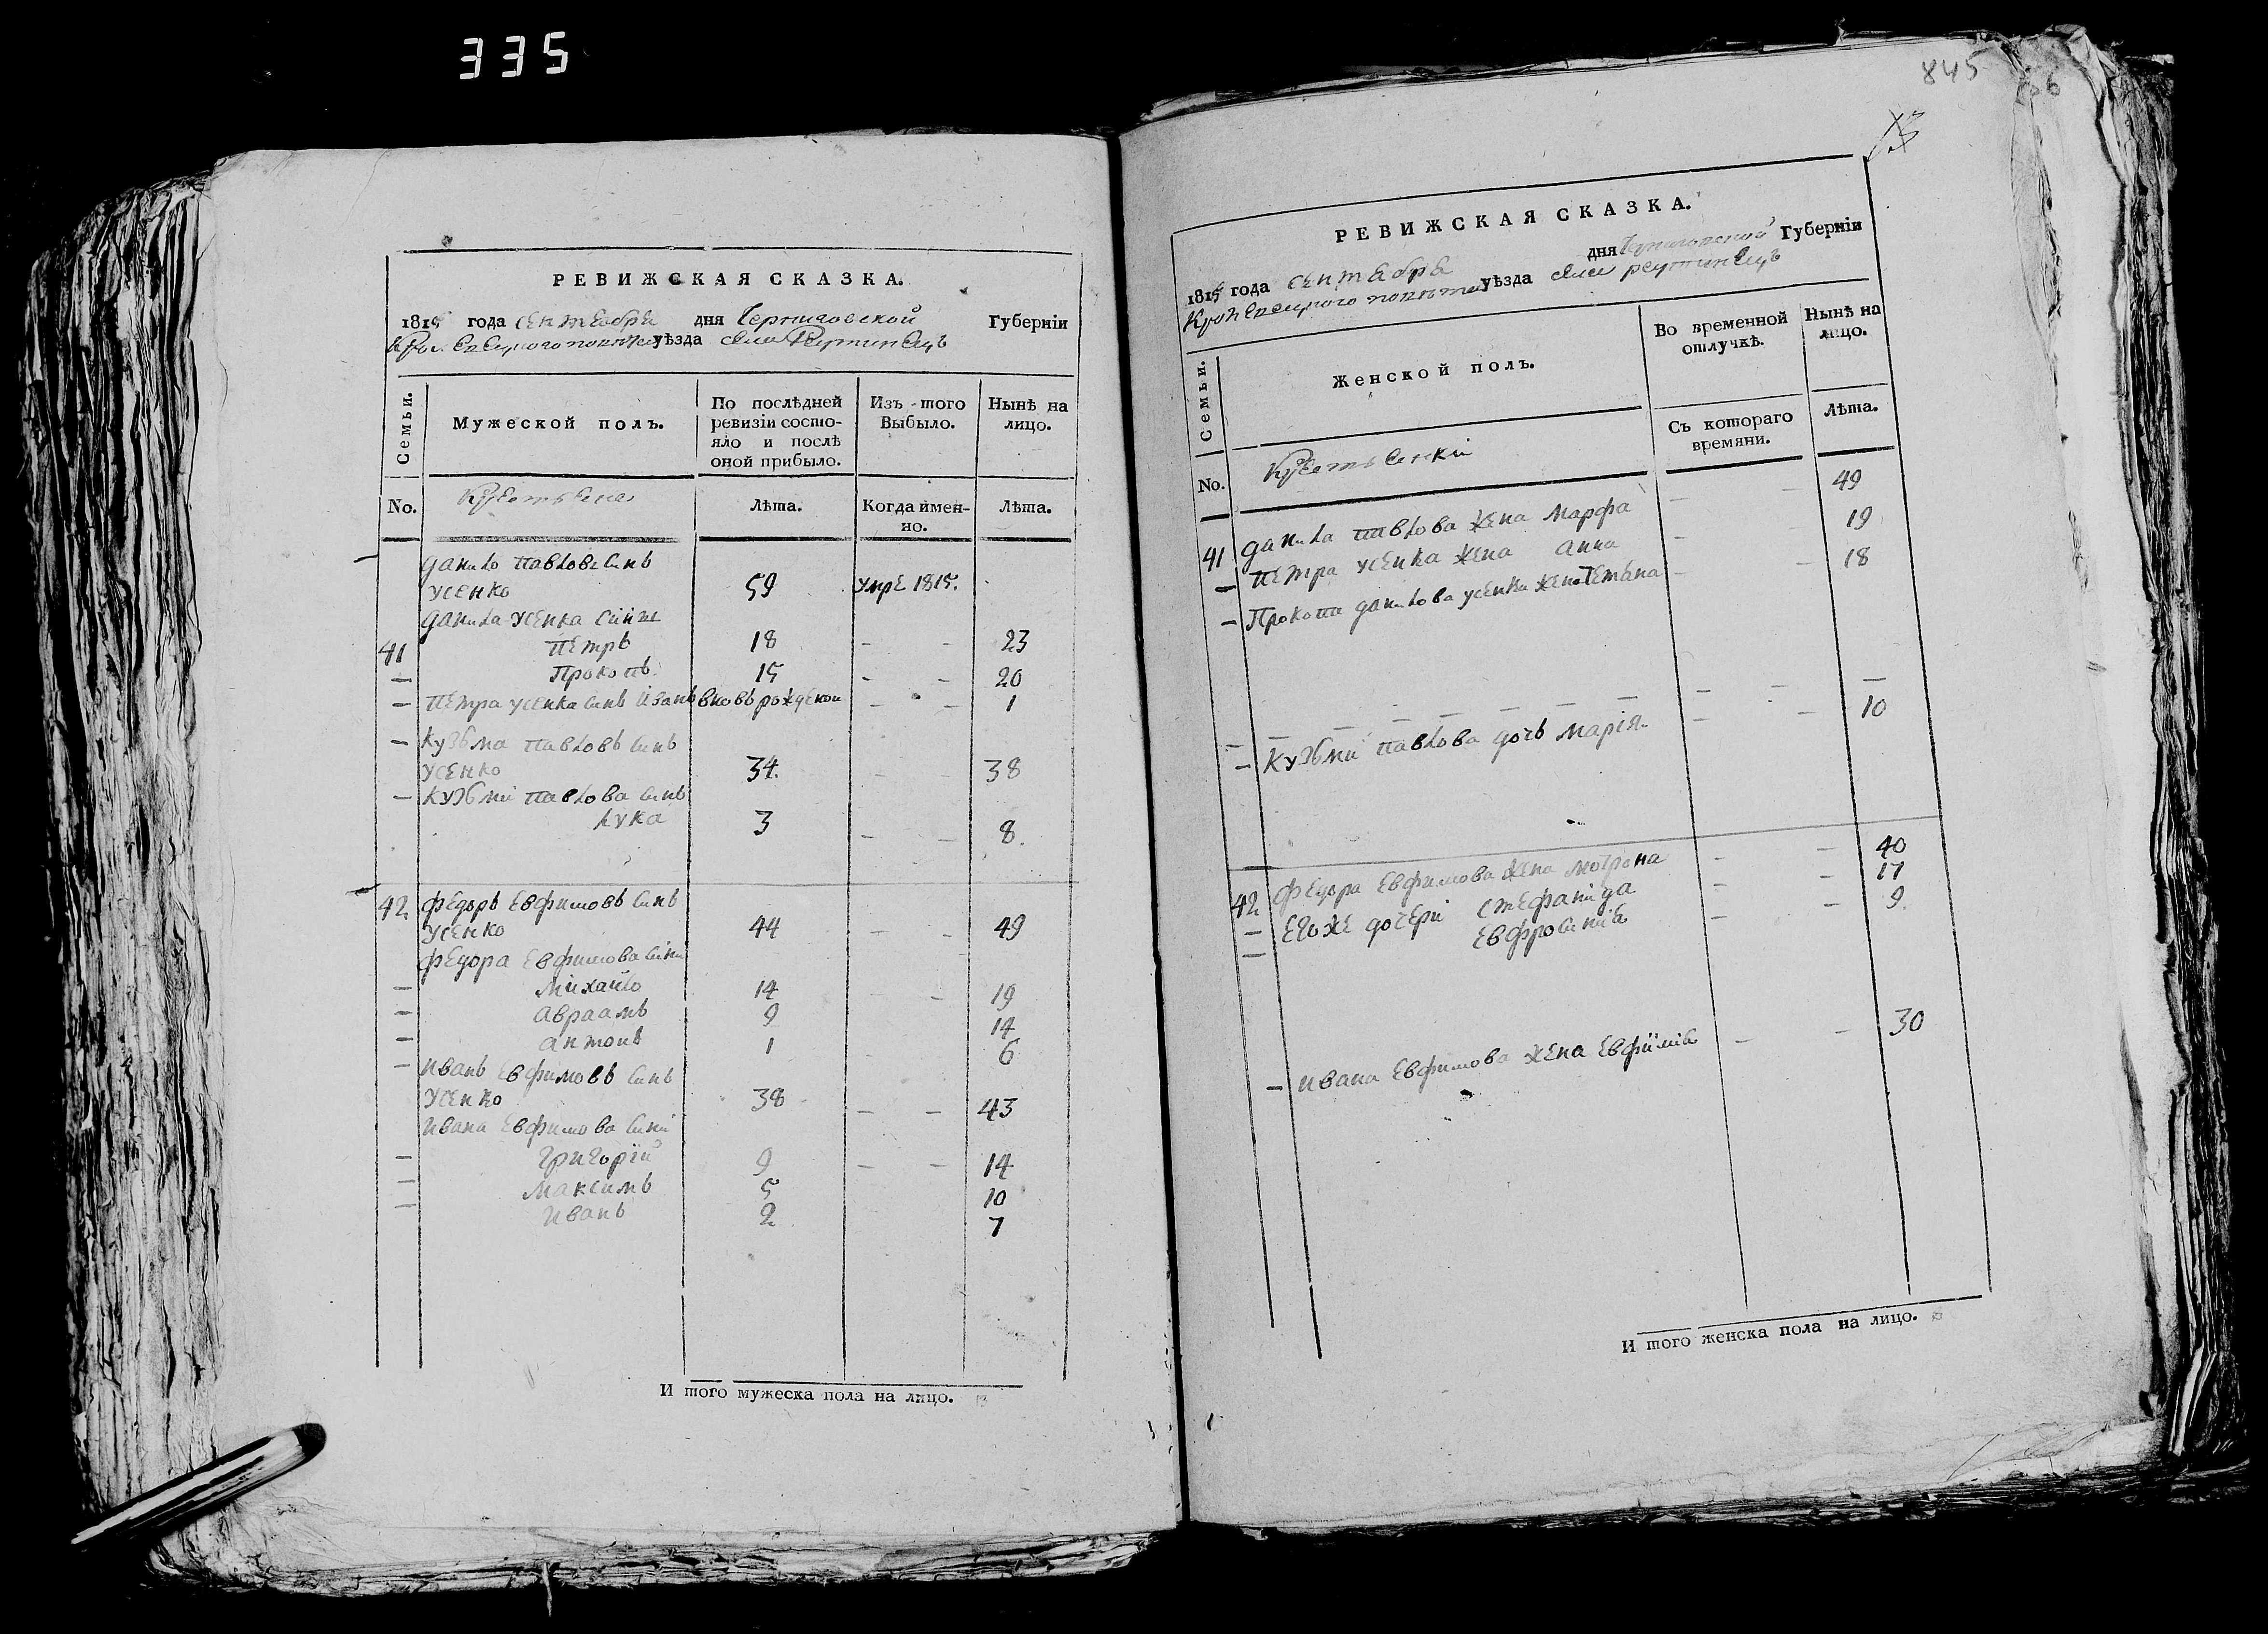 335
РЕВИЖСКАЯ СКАЗКА.
1815 года сентебря дня Черниговской Губернiи
Кролевецкого повета уѣзда села Реутинецъ
Семьи.
Мужеской полъ.
По послѣдней ревизiи состо-
яло и послѣ
оной прибыло.
Изъ того
Выбыло.
Нынѣ на
лицо.
No.
Крестьяне
Лѣта.
Когда имен-
но.
Лѣта.
данило павловъ синъ
усенко 59 умре 1815.
данила усенка сини
41 петръ 18 - - 23
— Прокопъ 15 - - 20
— петра усенка синъ иванъ вновь рожденой - - 1
— Кузьма павловъ синъ
усенко 34 - - 38
— Кузьми павлова синъ
лука 3 - - 8.
42 федоръ Евфимовъ синъ
усенко 44 - - 49
федора Евфимова сини
— михайло 14 - 19
— авраамъ 9 14
— антонъ 1 6
— иванъ Евфимовъ синъ
усенко 38 - - 43
ивана Евфимова сини
— григорiй 9 - - 14
— максимъ 5 10
— иванъ 2 7
И того мужеска пола на лицо. 13
845
РЕВИЖСКАЯ СКАЗКА.
1815 года сентебря дня Черниговской Губернiи
Кролевецкого повета уѣзда села реутинецъ
Семьи.
Женской полъ.
Во временной
отлучкѣ.
Нынѣ на
лицо.
No.
Крестьянки
Съ котораго
времяни.
Лѣта.
41 данила павлова жена марфа - - 49
— петра усенка жена анна - 19
— Прокопа данилова усенка жена Тетяна - - 18
— — — — — — — — — —
— Кузьми павлова дочь марiя - - 10
42 федора Евфимова жена мотрона - - 40
— Егоже дочерi стефанiда - - 17
— Евфросинiя - - 9.
— ивана Евфимова жена Евфимiя - - 30
И того женска пола на лицо.